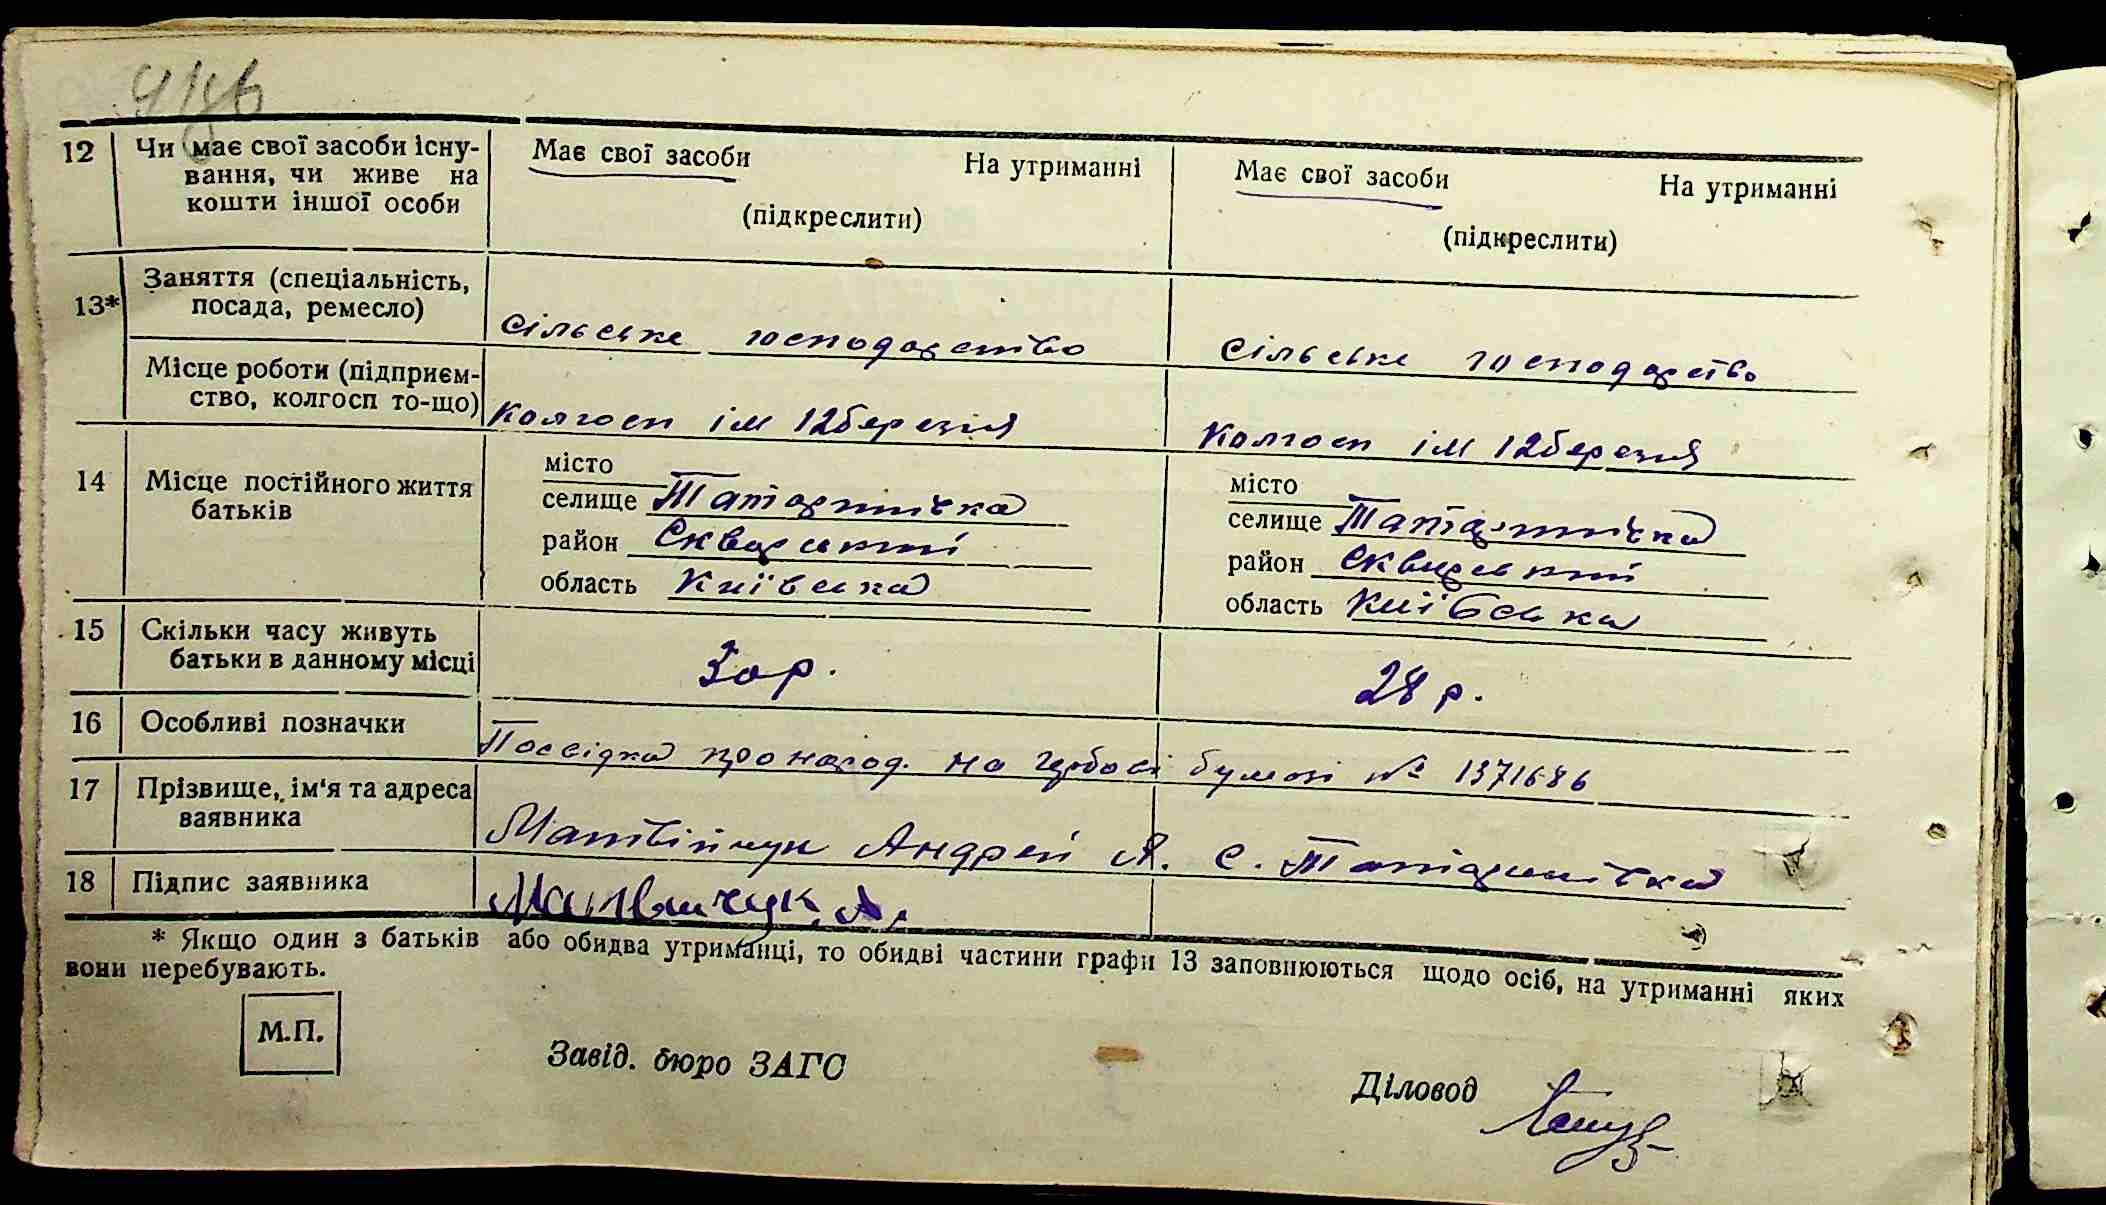 12 Чи має свої засоби існу-
вання, чи живе на
кошти іншої особи
Має свої засоби На утриманні
(підкреслити)
Має свої засоби На утриманні
(підкреслити)
13* Заняття (спеціальність,
посада, ремесло)
сільське господарство
сільське господарство
Місце роботи (підприєм-
ство, колгосп то-що)
Колгосп ім 12 березня
Колгосп ім 12 березня
14 Місце постійного життя
батьків
місто
селище Татаринівка
район Сквирський
область Київська
місто
селище Татаринівка
район Сквирський
область Київська
15 Скільки часу живуть
батьки в данному місці
30 р.
28 р.
16 Особливі позначки
Посвідка про народ. на гербові бумазі № 1371686
17 Прізвище, ім'я та адреса
заявника
Матвійчук Андрей Я. с. Татаринівка
18 Підпис заявника
Матвичук А.
* Якщо один з батьків або обидва утриманці, то обидві частини графи 13 заповнюються щодо осіб, на утриманні яких
вони перебувають.
М.П.
Завід. бюро ЗАГС
Діловод